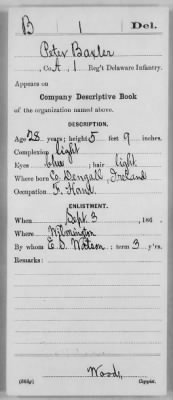 B 1 Del.
Peter Baxler
, Co. A, 1 Reg't Delaware Infantry.
Appears on
Company Descriptive Book
of the organization named above.
DESCRIPTION.
Age 28 years; height 5 feet 9 inches.
Complexion Light
Eyes blue; hair light
Where born Co. Dengall, Ireland
Occupation F. Hand
ENLISTMENT.
When Sept. 3, 186 .
Where Wilmington
By whom E. S. Watson; term 3 y'rs.
Remarks:
Woods
(383g) Copyist.